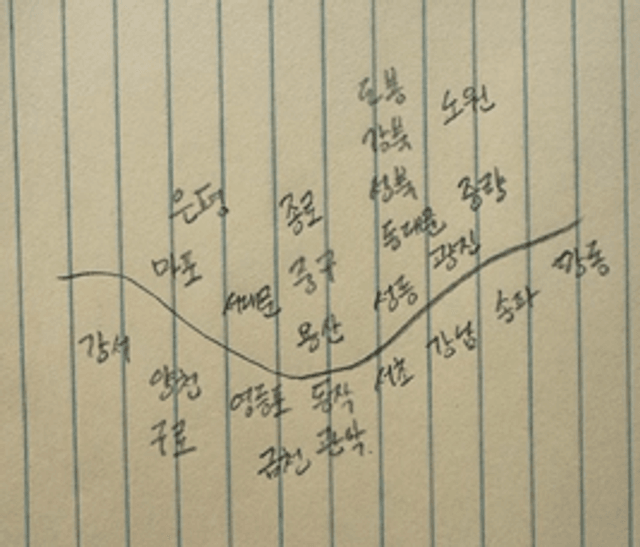 도봉
노원
강북
성북
중랑
은평
종로
동대문
광진
마포
중구
서대문
성동
강동
송파
용산
강서
강남
서초
양천
영등포
동작
구로
금천
관악.